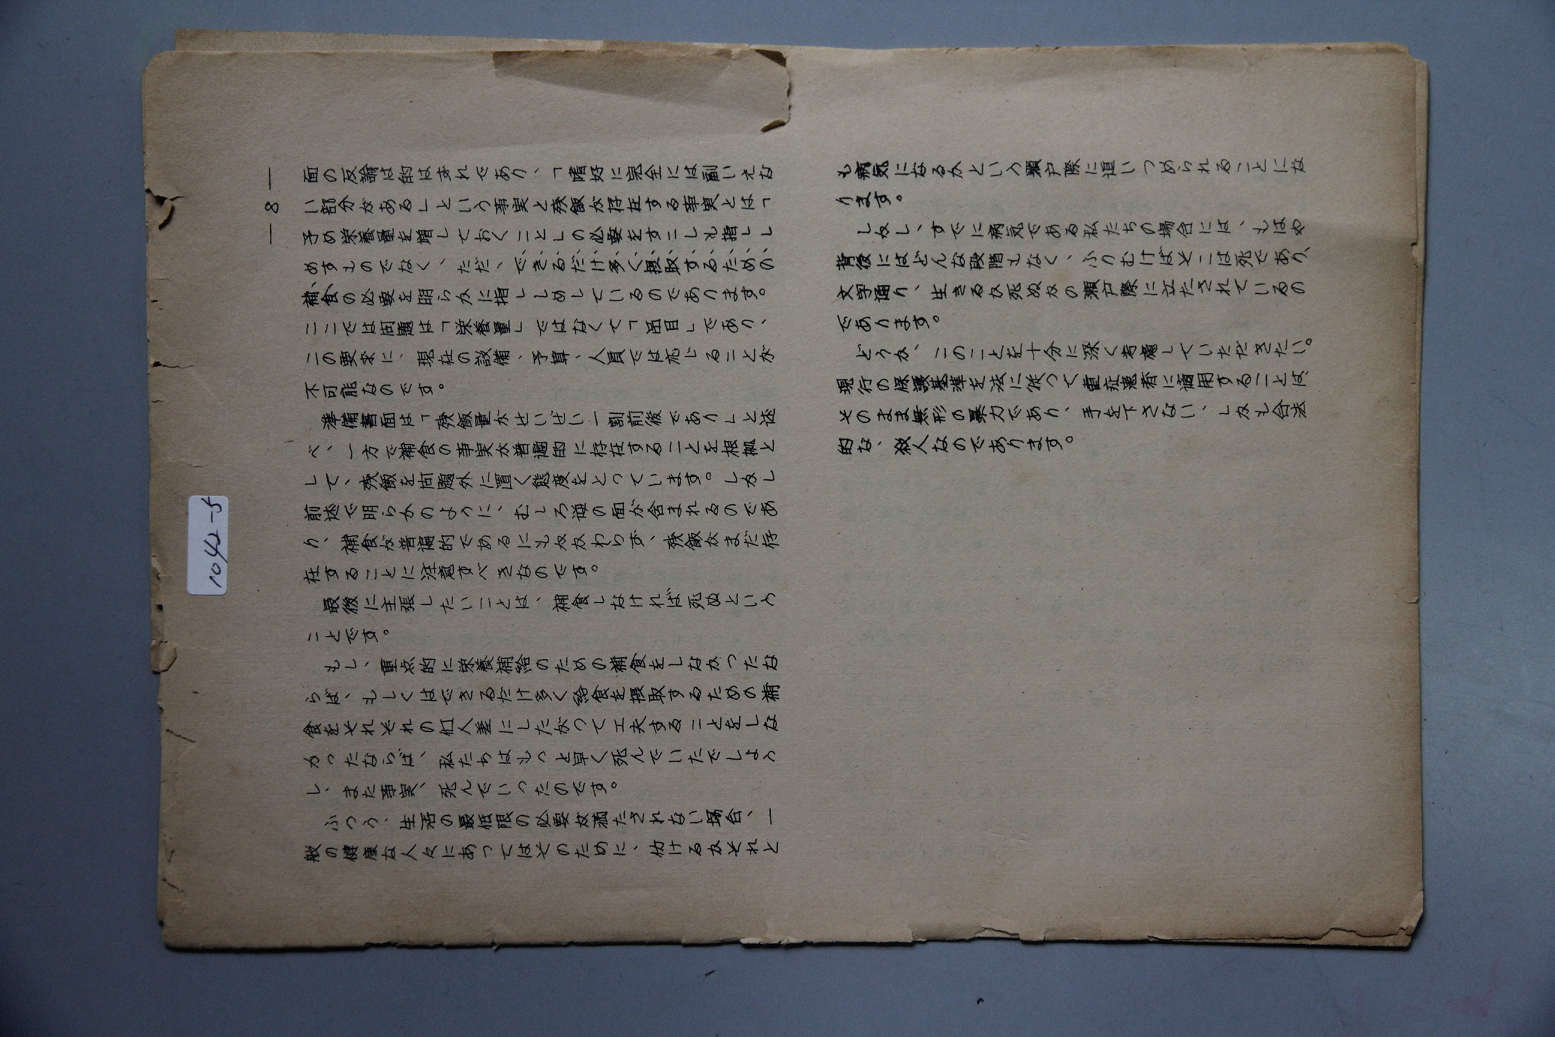 — 8 —
面の反論は的はずれであり、「嗜好に完全には副いえな
い部分がある」という事実と残飯が存在する事実とは「
予め栄養量を増しておくこと」の必要をすこしも指しし
めすものでなく、ただ、できるだけ多く摂取するための
補食の必要を明らかに指ししめしているのであります。
ここでは問題は「栄養量」ではなくて「品目」であり、
この要求に、現在の設備、予算、人員では応じることが
不可能なのです。
準備書面は「残飯量がせいぜい一割前後であり」と述
べ、一方で補食の事実が普遍的に存在することを根拠と
して、残飯を問題外に置く態度をとっています。しかし
前述で明らかのように、むしろ逆の面が含まれるのであ
り、補食が普遍的であるにもかかわらず、残飯がまだ存
在することに注意すべきなのです。
最後に主張したいことは、補食しなければ死ぬという
ことです。
もし、重点的に栄養補給のための補食をしなかったな
らば、もしくはできるだけ多く給食を摂取するための補
食をそれぞれの個人差にしたがって工夫することをしな
かったならば、私たちはもっと早く死んでいたでしょう
し、また事実、死んでいったのです。
ふつう、生活の最低限の必要が満たされない場合、一
般の健康な人々にあってはそのために、怠けるかそれと
も病気になるかという瀬戸際に追いつめられることにな
ります。
しかし、すでに病気である私たちの場合には、もはや
背後にはどんな段階もなく、ふりむけばそこは死であり、
文字通り、生きるか死ぬかの瀬戸際に立たされているの
であります。
どうか、このことを十分に深く考慮していただきたい。
現行の保護基準を法に従って重症患者に適用することは、
そのまま無形の暴力であり、手を下さない、しかも合法
的な、殺人なのであります。
1042-5